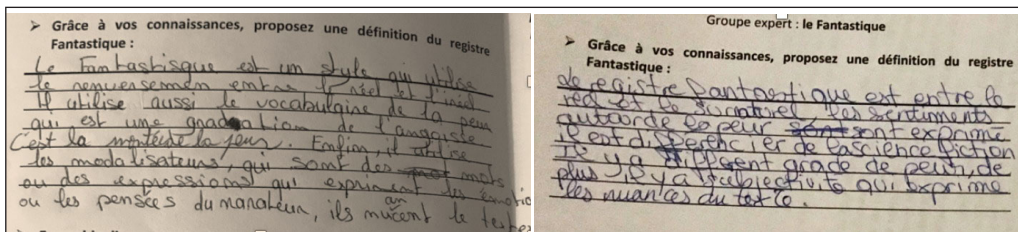 ➤ Grâce à vos connaissances, proposez une définition du registre
Fantastique :
Le Fantastisque est un style qui utilise
le renversemen entre l'réel et l'iréel
Il utilise aussi le vocabulaire de la peur
qui est une gradation de l'angoiste
C'est la montéede la peur. Enfim, il utilise
les modalisateurs, qui sont des mots
ou des expressions qui expriment les émotio
ou les pensées du narrateur, ils nuancent le texte
Groupe expert : le Fantastique
➤ Grâce à vos connaissances, proposez une définition du registre
Fantastique :
Le registre Fantastique est entre le
réel et le surnaturel les sentiments
autoorde la peur sont exprimé
il est differencier de la science fiction
Il y a different grade de peur, de
plus, il y a subjectivité qui exprime
les nuances du texte.